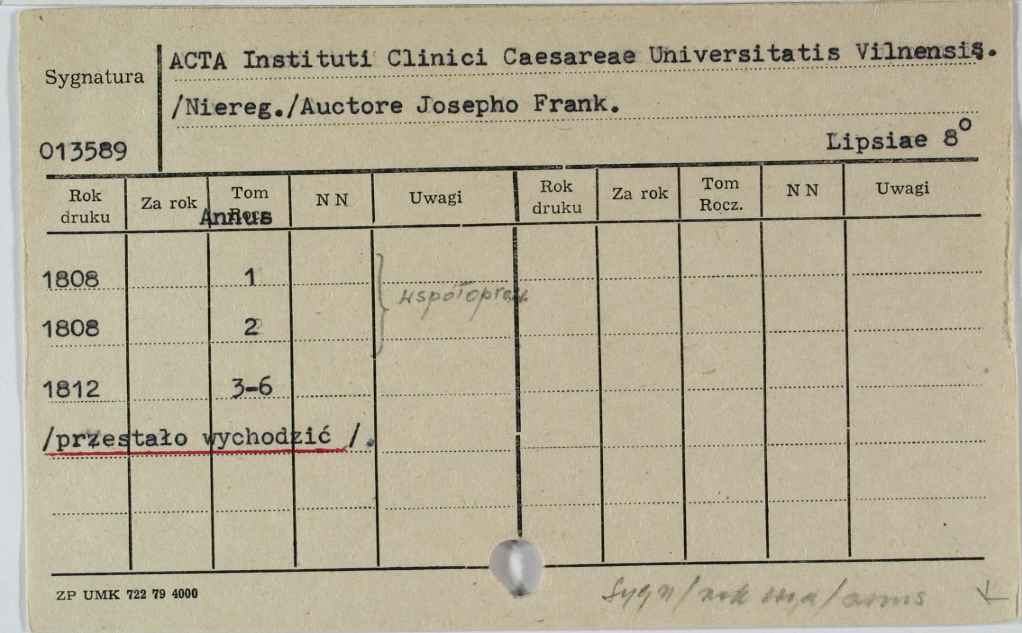 Sygnatura
ACTA Instituti Clinici Caesareae Universitatis Vilnensis.
/Niereg./Auctore Josepho Frank.
013589
Lipsiae 8°
Rok druku Za rok Tom Rocz. N N Uwagi Rok druku Za rok Tom Rocz. N N Uwagi
Annus
1808 1
współopraw.
1808 2
1812 3-6
/przestało wychodzić /.
ZP UMK 722 79 4000
Sygn/rok